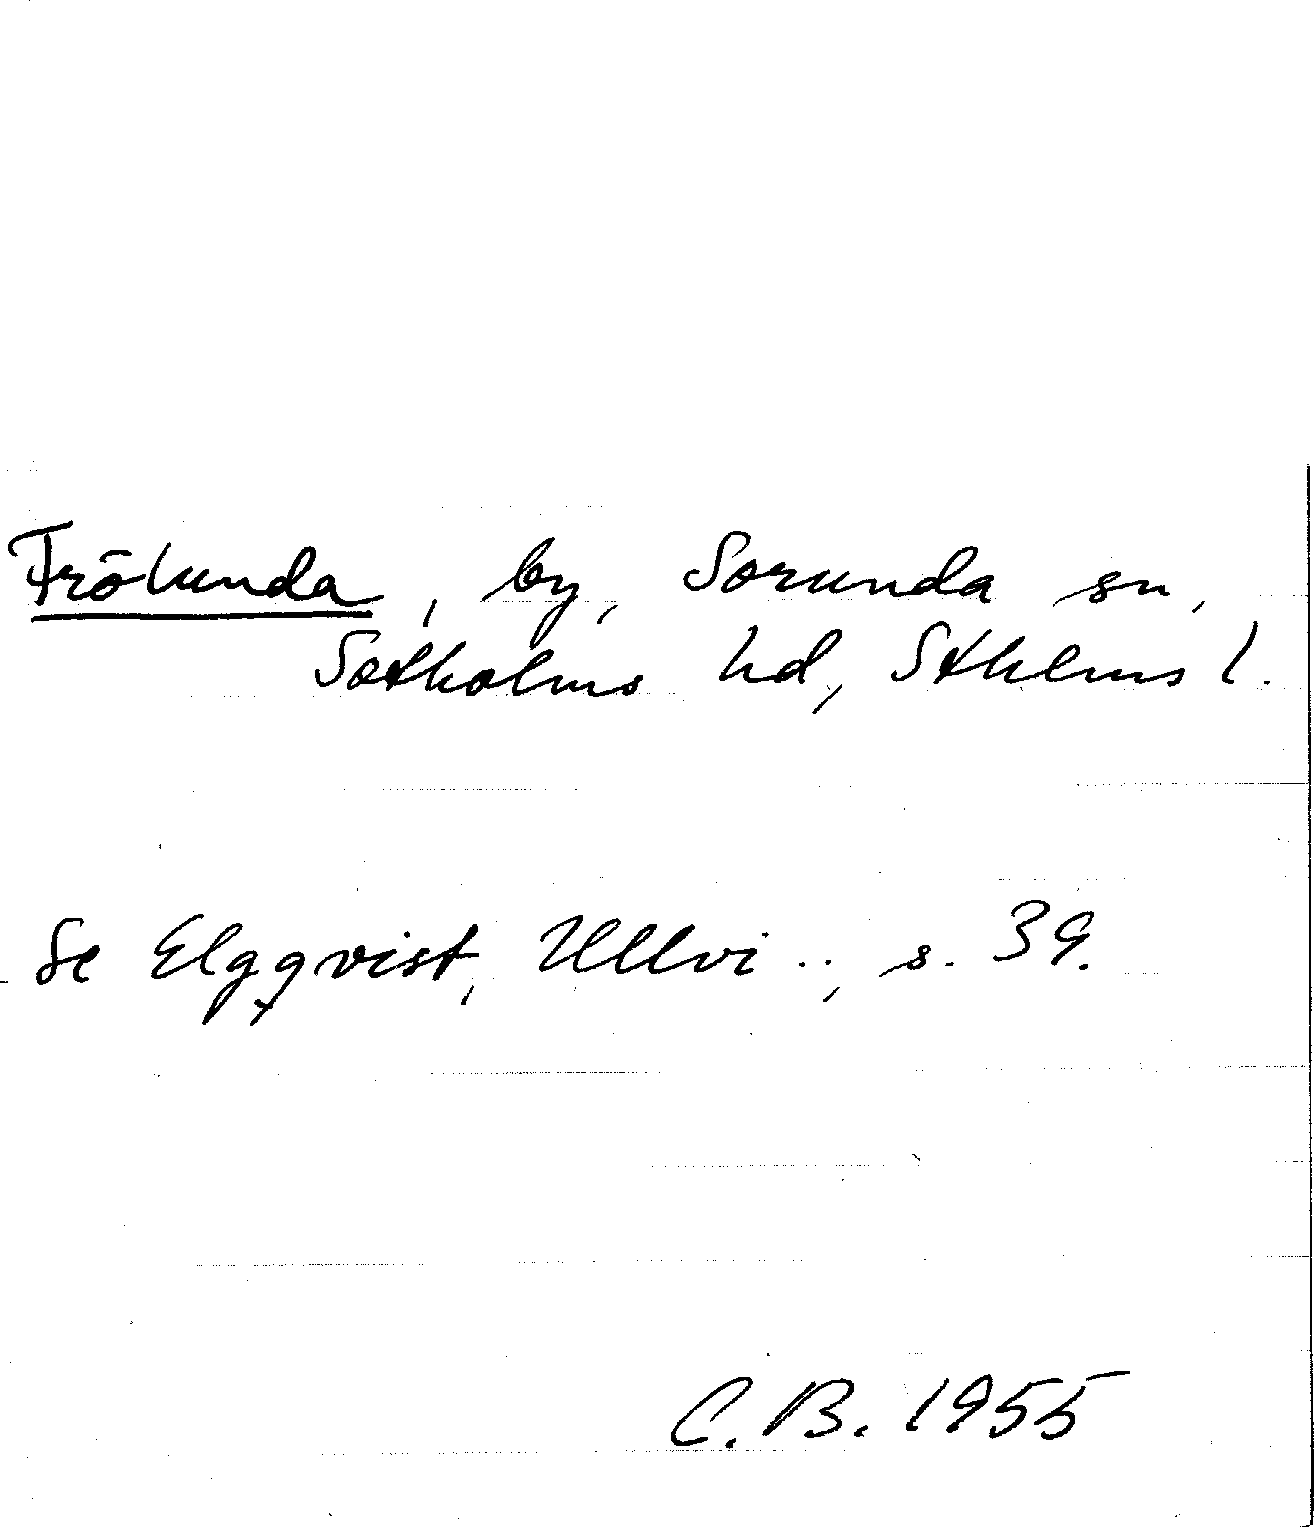 Frölunda, by, Sorunda sn,
Sotholms hd, Sthlms l.
Se Elgqvist, Ullvi .., s. 39.
C.B. 1955